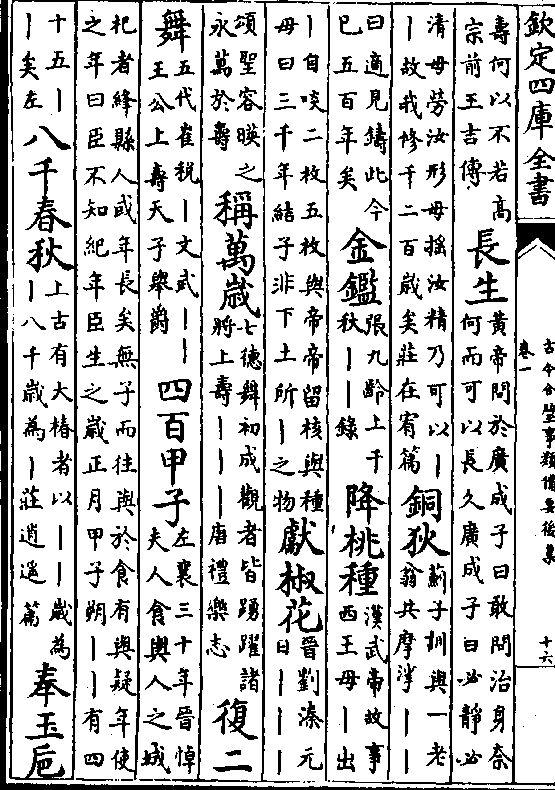 欽定四庫全書
古今合璧事類備要後集
卷一
十六
壽何以不若高
宗前王吉傳
長生
黃帝問於廣成子曰敢問治身奈
何而可以長久廣成子曰必靜必
清毋勞汝形毋搖汝精乃可以丨
丨故我修千二百歲矣莊在宥篇
銅狄
薊子訓與一老
翁共摩挲丨丨
曰適見鑄此今
已五百年矣
金鑑
張九齡上千
秋丨丨錄
降桃種
漢武帝故事
西王母丨出
丨自啖二枚五枚與帝帝留核與種
母曰三千年結子非下土所丨之物
獻椒花
晉劉溱元
日丨丨丨
頌聖容暎之
永萬於壽
稱萬歲
七德舞初成觀者皆踴躍諸
將上壽丨丨丨唐禮樂志
復二
舞
五代崔稅丨文武丨丨
王公上壽天子舉爵
四百甲子
左襄三十年晉悼
夫人食輿人之城
杞者絳縣人或年長矣無子而往與於食有與疑年使
之年曰臣不知紀年臣生之歲正月甲子朔丨丨有四
十五丨
丨矣左
八千春秋
上古有大椿者以丨丨歲為
丨八千歲為丨莊逍遥篇
奉玉巵